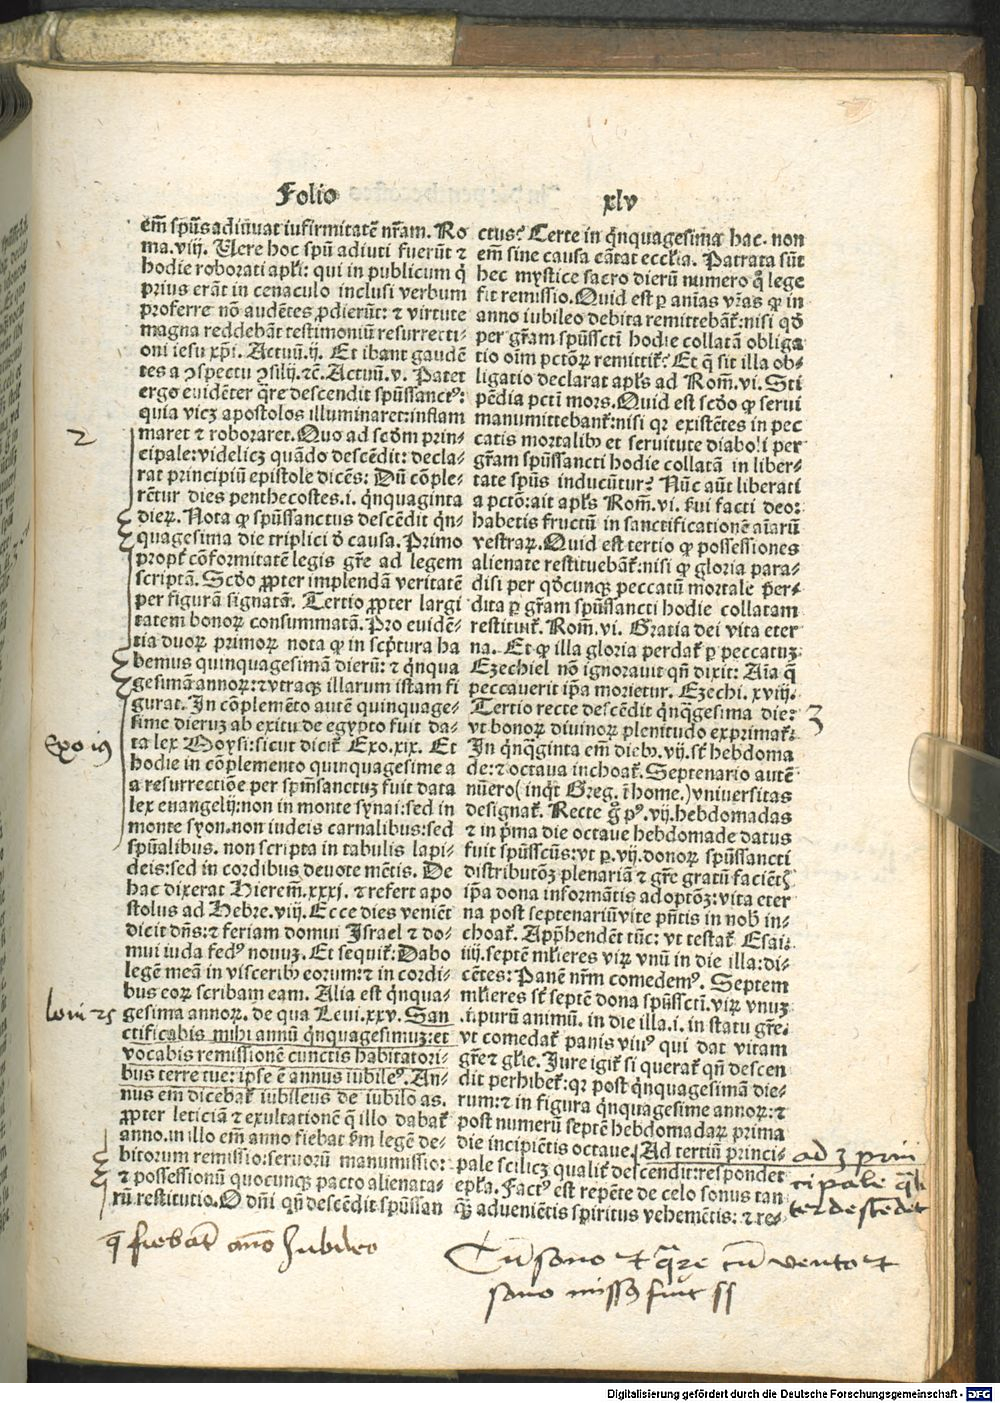 Folio xlv
em̄ spūs adiuuat iufirmitatē nr̄am. Ro
ma. viij. Uere hoc spū adiuti fuerūt ⁊
hodie roborati apl̄i: qui in publicum q̄
prius erāt in cenaculo inclusi verbum
proferre nō audētes ꝓdierūt: ⁊ virtute
magna reddebāt testimoniū resurrecti-
oni iesu xp̄i. Actuū. ij. Et ibant gaudē
tes a ↄspectu ↄsilij. ⁊c̄. Actuū. v. Patet
ergo euidēter q̄re descendit spūssanctꝰ:
quia vicꝫ apostolos illuminaret: inflam
maret ⁊ roboraret. Quo ad scd̄m prin-
cipale: videlicꝫ quādo descēdit: decla-
rat principiū epistole dicēs: Dū cōple-
rētur dies penthecostes. i. q̄nquaginta
dieꝝ. Nota ꝙ spūssanctus descēdit q̄n-
quagesima die triplici d̄ causa. Primo
propt̄ cōformitatē legis gr̄e ad legem
scriptā. Scd̄o ꝓpter implendā veritatē
per figurā signatā. Tertio ꝓpter largi
tatem bonoꝝ consummatā. Pro euidē-
tia duoꝝ primoꝝ nota ꝙ in scp̄tura ha
bemus quinquagesimā dierū: ⁊ q̄nqua
gesimā annoꝝ: ⁊ vtraqꝫ illarum istam fi
gurat. In cōplemēto autē quinquage-
sime dieruꝫ ab exitu de egypto fuit da-
ta lex Moysi: sicut dicit̄ Exo. xix. Et
hodie in cōplemento quinquagesime a
a resurrectiōe per spm̄sanctuꝫ fuit data
lex euangelij: non in monte synai: sed in
monte syon. non iudeis carnalibus: sed
spūalibus. non scripta in tabulis lapi-
deis: sed in cordibus deuote mētis. De
hac dixerat Hierem̄. xxxj. ⁊ refert apo
stolus ad Hebre. viij. Ecce dies veniēt
dicit dn̄s: ⁊ feriam domui Israel ⁊ do-
mui iuda fedꝰ nouuꝫ. Et sequit̄: Dabo
legē meā in visceribꝫ eorum: ⁊ in cordi-
bus eoꝝ scribam eam. Alia est q̄nqua-
gesima annoꝝ. de qua Leui. xxv. San
ctificabis mihi annū q̄nquagesimuꝫ: et
vocabis remissionē cunctis habitatori-
bus terre tue: ipse ē annus iubileꝰ. An-
nus em̄ dicebat̄ iubileus de iubilo as.
ꝓpter leticiā ⁊ exultationē q̄ illo dabat̄
anno. in illo em̄ anno fiebat s̄m legē de-
bitorum remissio: seruorū manumissio:
⁊ possessionū quocunqꝫ pacto alienata-
rū restitutio. O dn̄i qn̄ descēdit spūssan
ctus? Certe in q̄nquagesima hac. non
em̄ sine causa cātat eccl̄ia. Patrata sūt
hec mystice sacro dierū numero q̄ lege
fit remissio. Quid est ꝑ an̄ias vr̄as ꝙ in
anno iubileo debita remittebāt̄: nisi qd̄
per gr̄am spūsscti hodie collatā obliga
tio oim̄ pctōꝝ remittit̄? Et q̄ sit illa ob-
ligatio declarat apl̄s ad Rom̄. vi. Sti
pēdia pcti mors. Quid est scd̄o ꝙ serui
manumittebant̄: nisi qꝛ existētes in pec
catis mortalibꝫ et seruitute diaboli per
gr̄am spūssancti hodie collatā in liber-
tate spūs inducūtur? Nūc aūt liberati
a pctō: ait apl̄s Rom̄. vi. ẜui facti deo:
habetis fructū in sanctificationē aīarū
vestraꝝ. Quid est tertio ꝙ possessiones
alienate restituebāt̄: nisi ꝙ gloria para-
disi per qd̄cunqꝫ peccatū mortale ꝑer-
dita ꝑ gr̄am spūssancti hodie collatam
restituit̄. Rom̄. vi. Gratia dei vita eter
na. Et ꝙ illa gloria perdat̄ ꝑ peccatuꝫ
Ezechiel nō ignorauit qn̄ dixit: Aīa q̄
peccauerit ip̄a morietur. Ezechi. xviij.
Tertio recte descēdit q̄nq̄gesima die:
vt bonoꝝ diuinoꝝ plenitudo exprimat̄:
In q̄nq̄ginta em̄ diebꝫ. vij. st̄ hebdoma
de: ⁊ octaua inchoat̄. Septenario autē
nūero (inq̄t Greg. ī home.) vniuersitas
designat̄. Recte g̊ pꝰ. vij. hebdomadas
⁊ in p̄ma die octaue hebdomade datus
fuit spūsscūs: vt ꝑ. vij. donoꝝ spūssancti
distributōꝫ plenariā ⁊ gr̄e gratū faciēt̄
ip̄a dona informātis adoptōꝫ: vita eter
na post septenariū vite p̄ntis in nob̄ in-
choat̄. Appr̄hendēt tūc: vt testat̄ Esai.
iiij. septē ml̄ieres viꝝ vnū in die illa: di-
cētes: Panē nr̄m comedemꝰ. Septem
ml̄ieres st̄ septē dona spūsscti. viꝝ vnuꝫ
.n̄ purū animū. in die illa. i. in statu gr̄e.
vt comedat̄ panis viuꝰ qui dat vitam
gr̄e ⁊ gl̄ie. Jure igit̄ si querat̄ qn̄ descen
dit perhibet̄: qꝛ post q̄nquagesimā die-
rum: ⁊ in figura q̄nquagesime annoꝝ: ⁊
post numerū septē hebdomadaꝝ prima
die incipiētis octaue. Ad tertiū princi-
pale scilicꝫ qualit̄ descendit: respondet
epl̄a. Factꝰ est repēte de celo sonus tan
qꝫ̄ aduenientis spiritus vehemētis: ⁊ re-
2
Exo 19
leui 25
3
ad 3 prin
cipale q̄li
ter descēdet
q̄ fiebāt āno Jubileo
Cū sono et q̄re cū vento et
sono missꝫ fuit ss
Digitalisierung gefördert durch die Deutsche Forschungsgemeinschaft - DFG